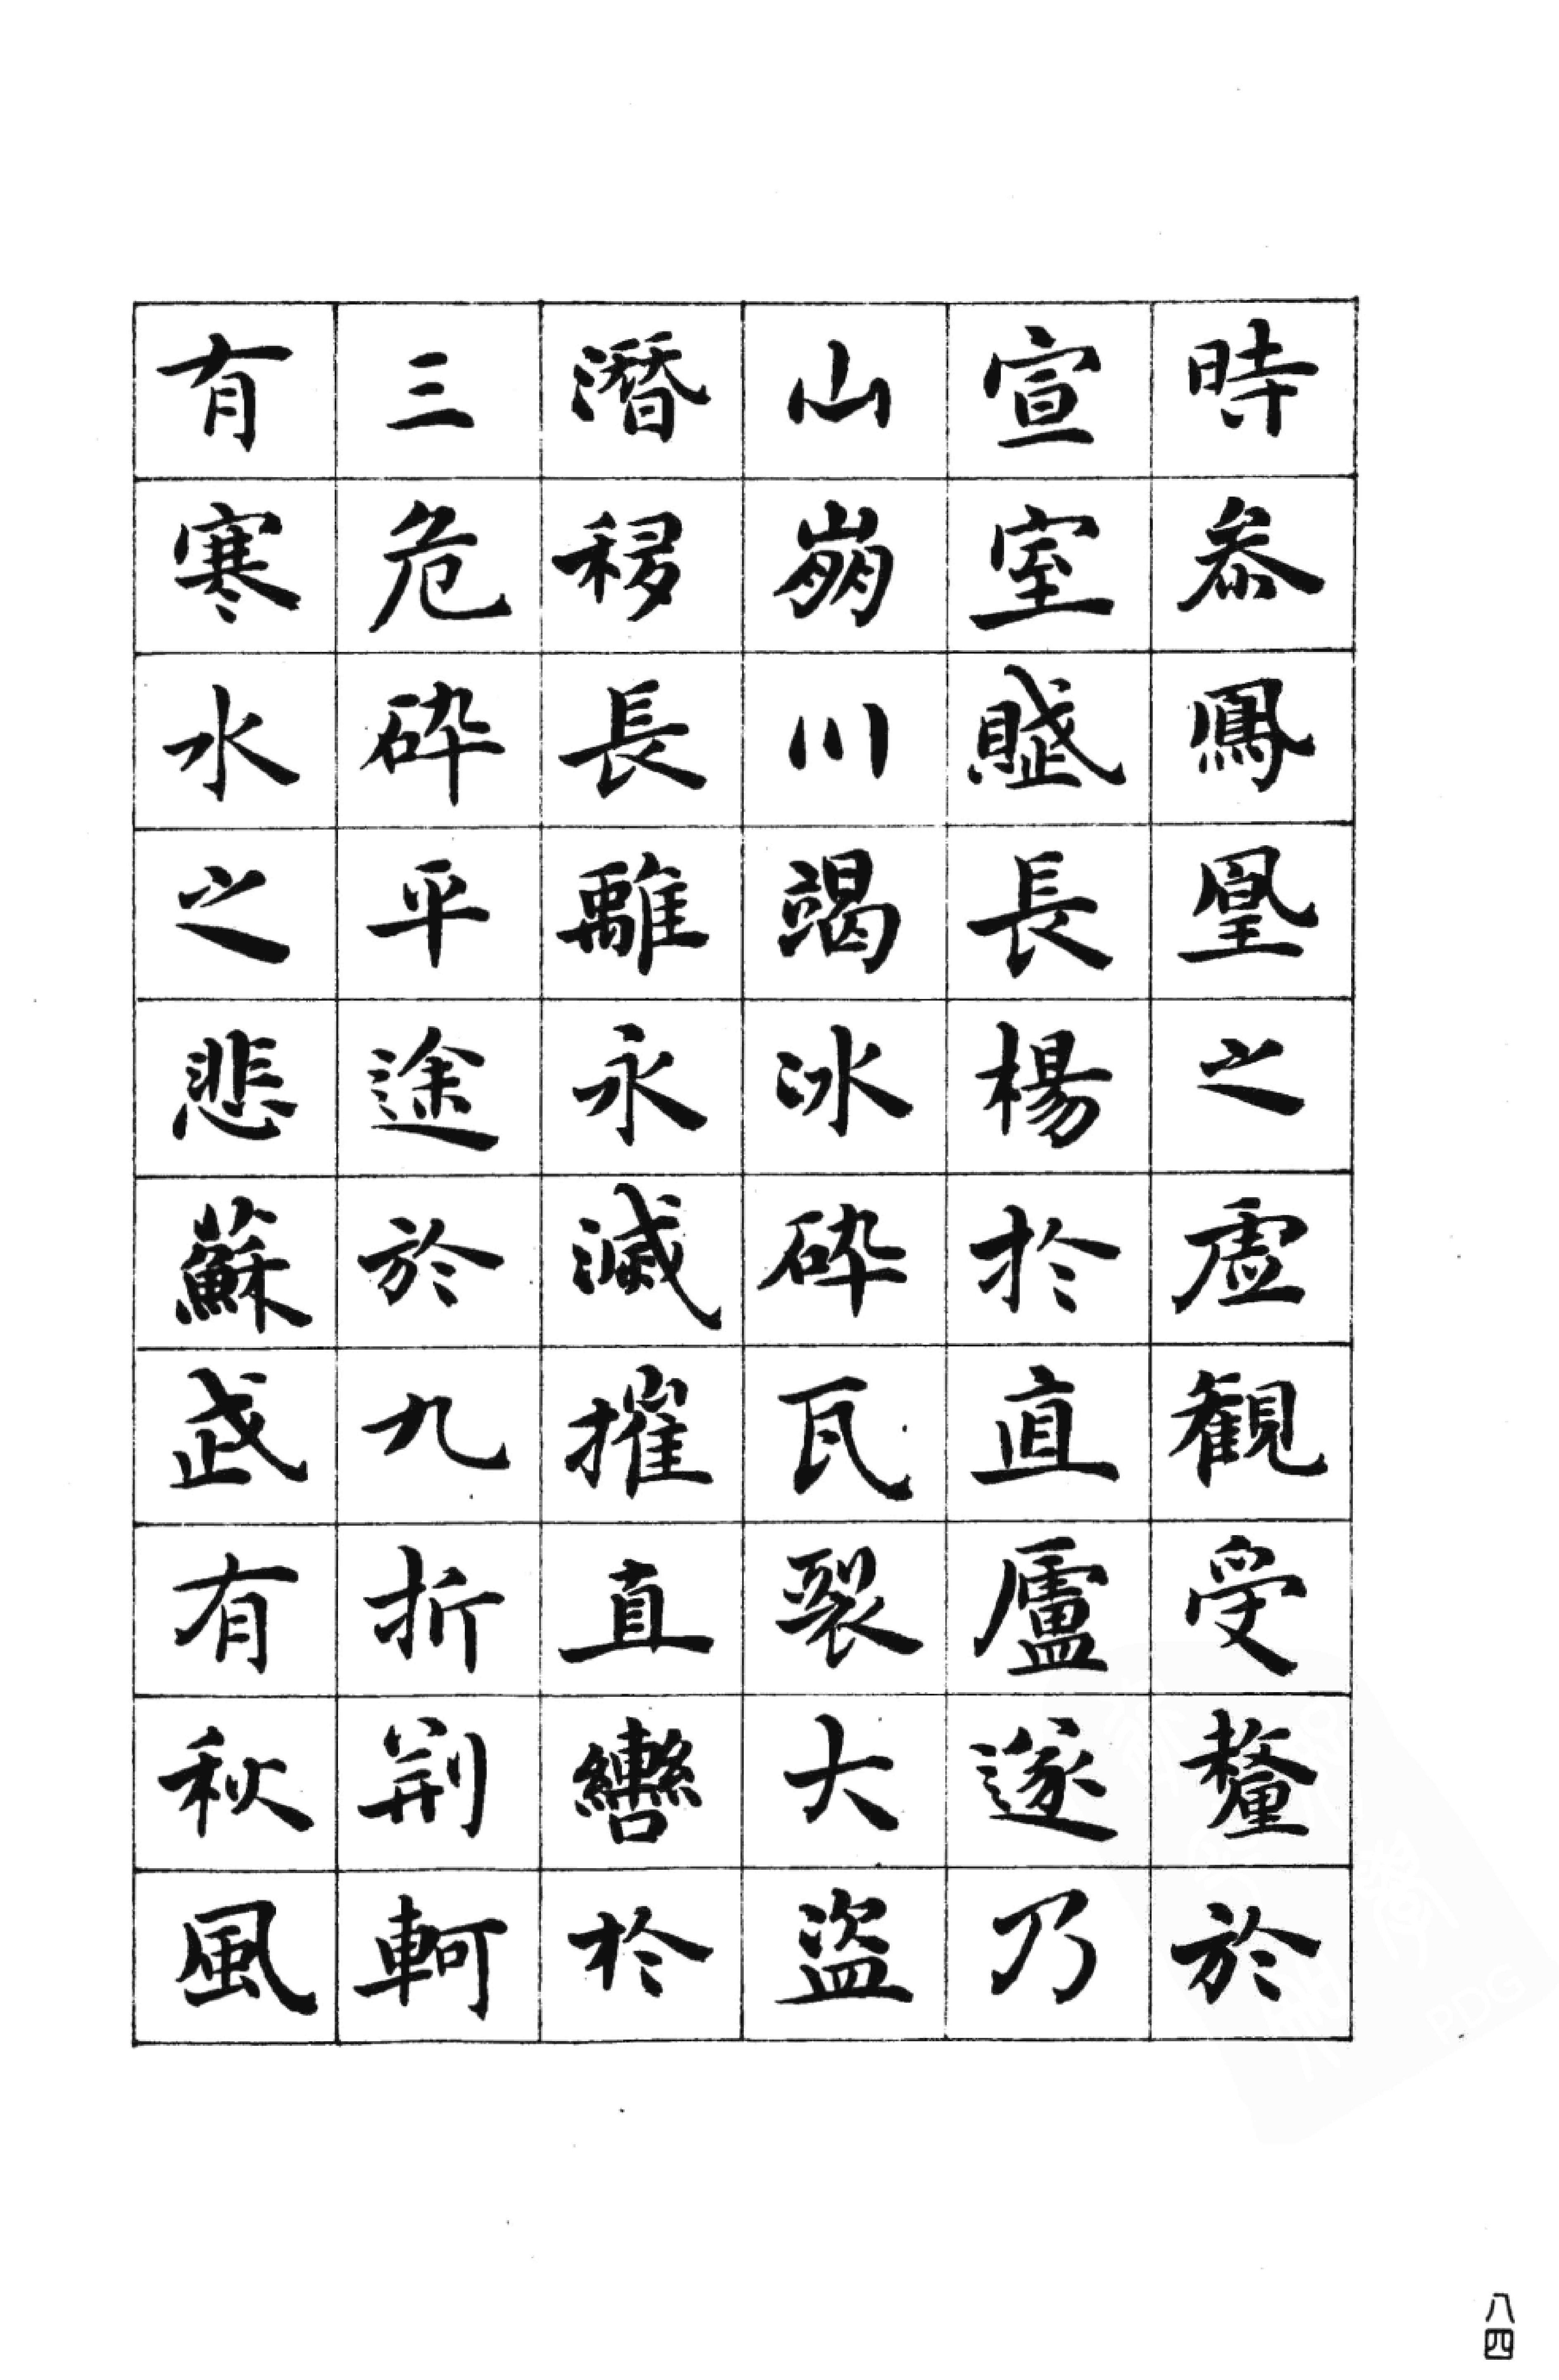 時參鳳凰之虛觀受釐於
宣室賦長楊於直廬遂乃
山崩川竭冰碎瓦裂大盜
潛移長離永滅摧直轡於
三危碎平途於九折荊軻
有寒水之悲蘇武有秋風
八四